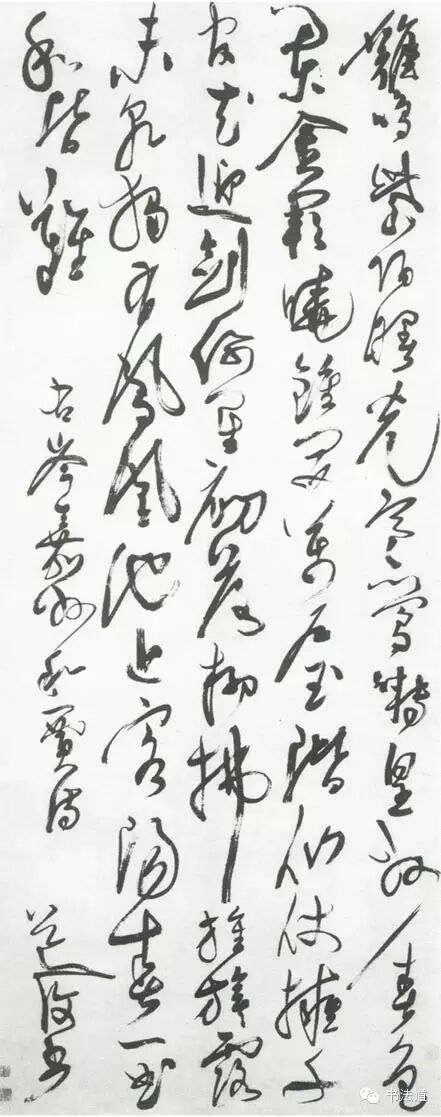 雞鳴紫陌曙光寒鶯囀皇州春色
闌金闕曉鐘開萬戶玉階仙仗擁千
官花迎劍佩星初落柳拂旌旗露
未乾獨有鳳凰池上客陽春一曲
和皆難
右岑嘉州和賈詩 道復書
书法道